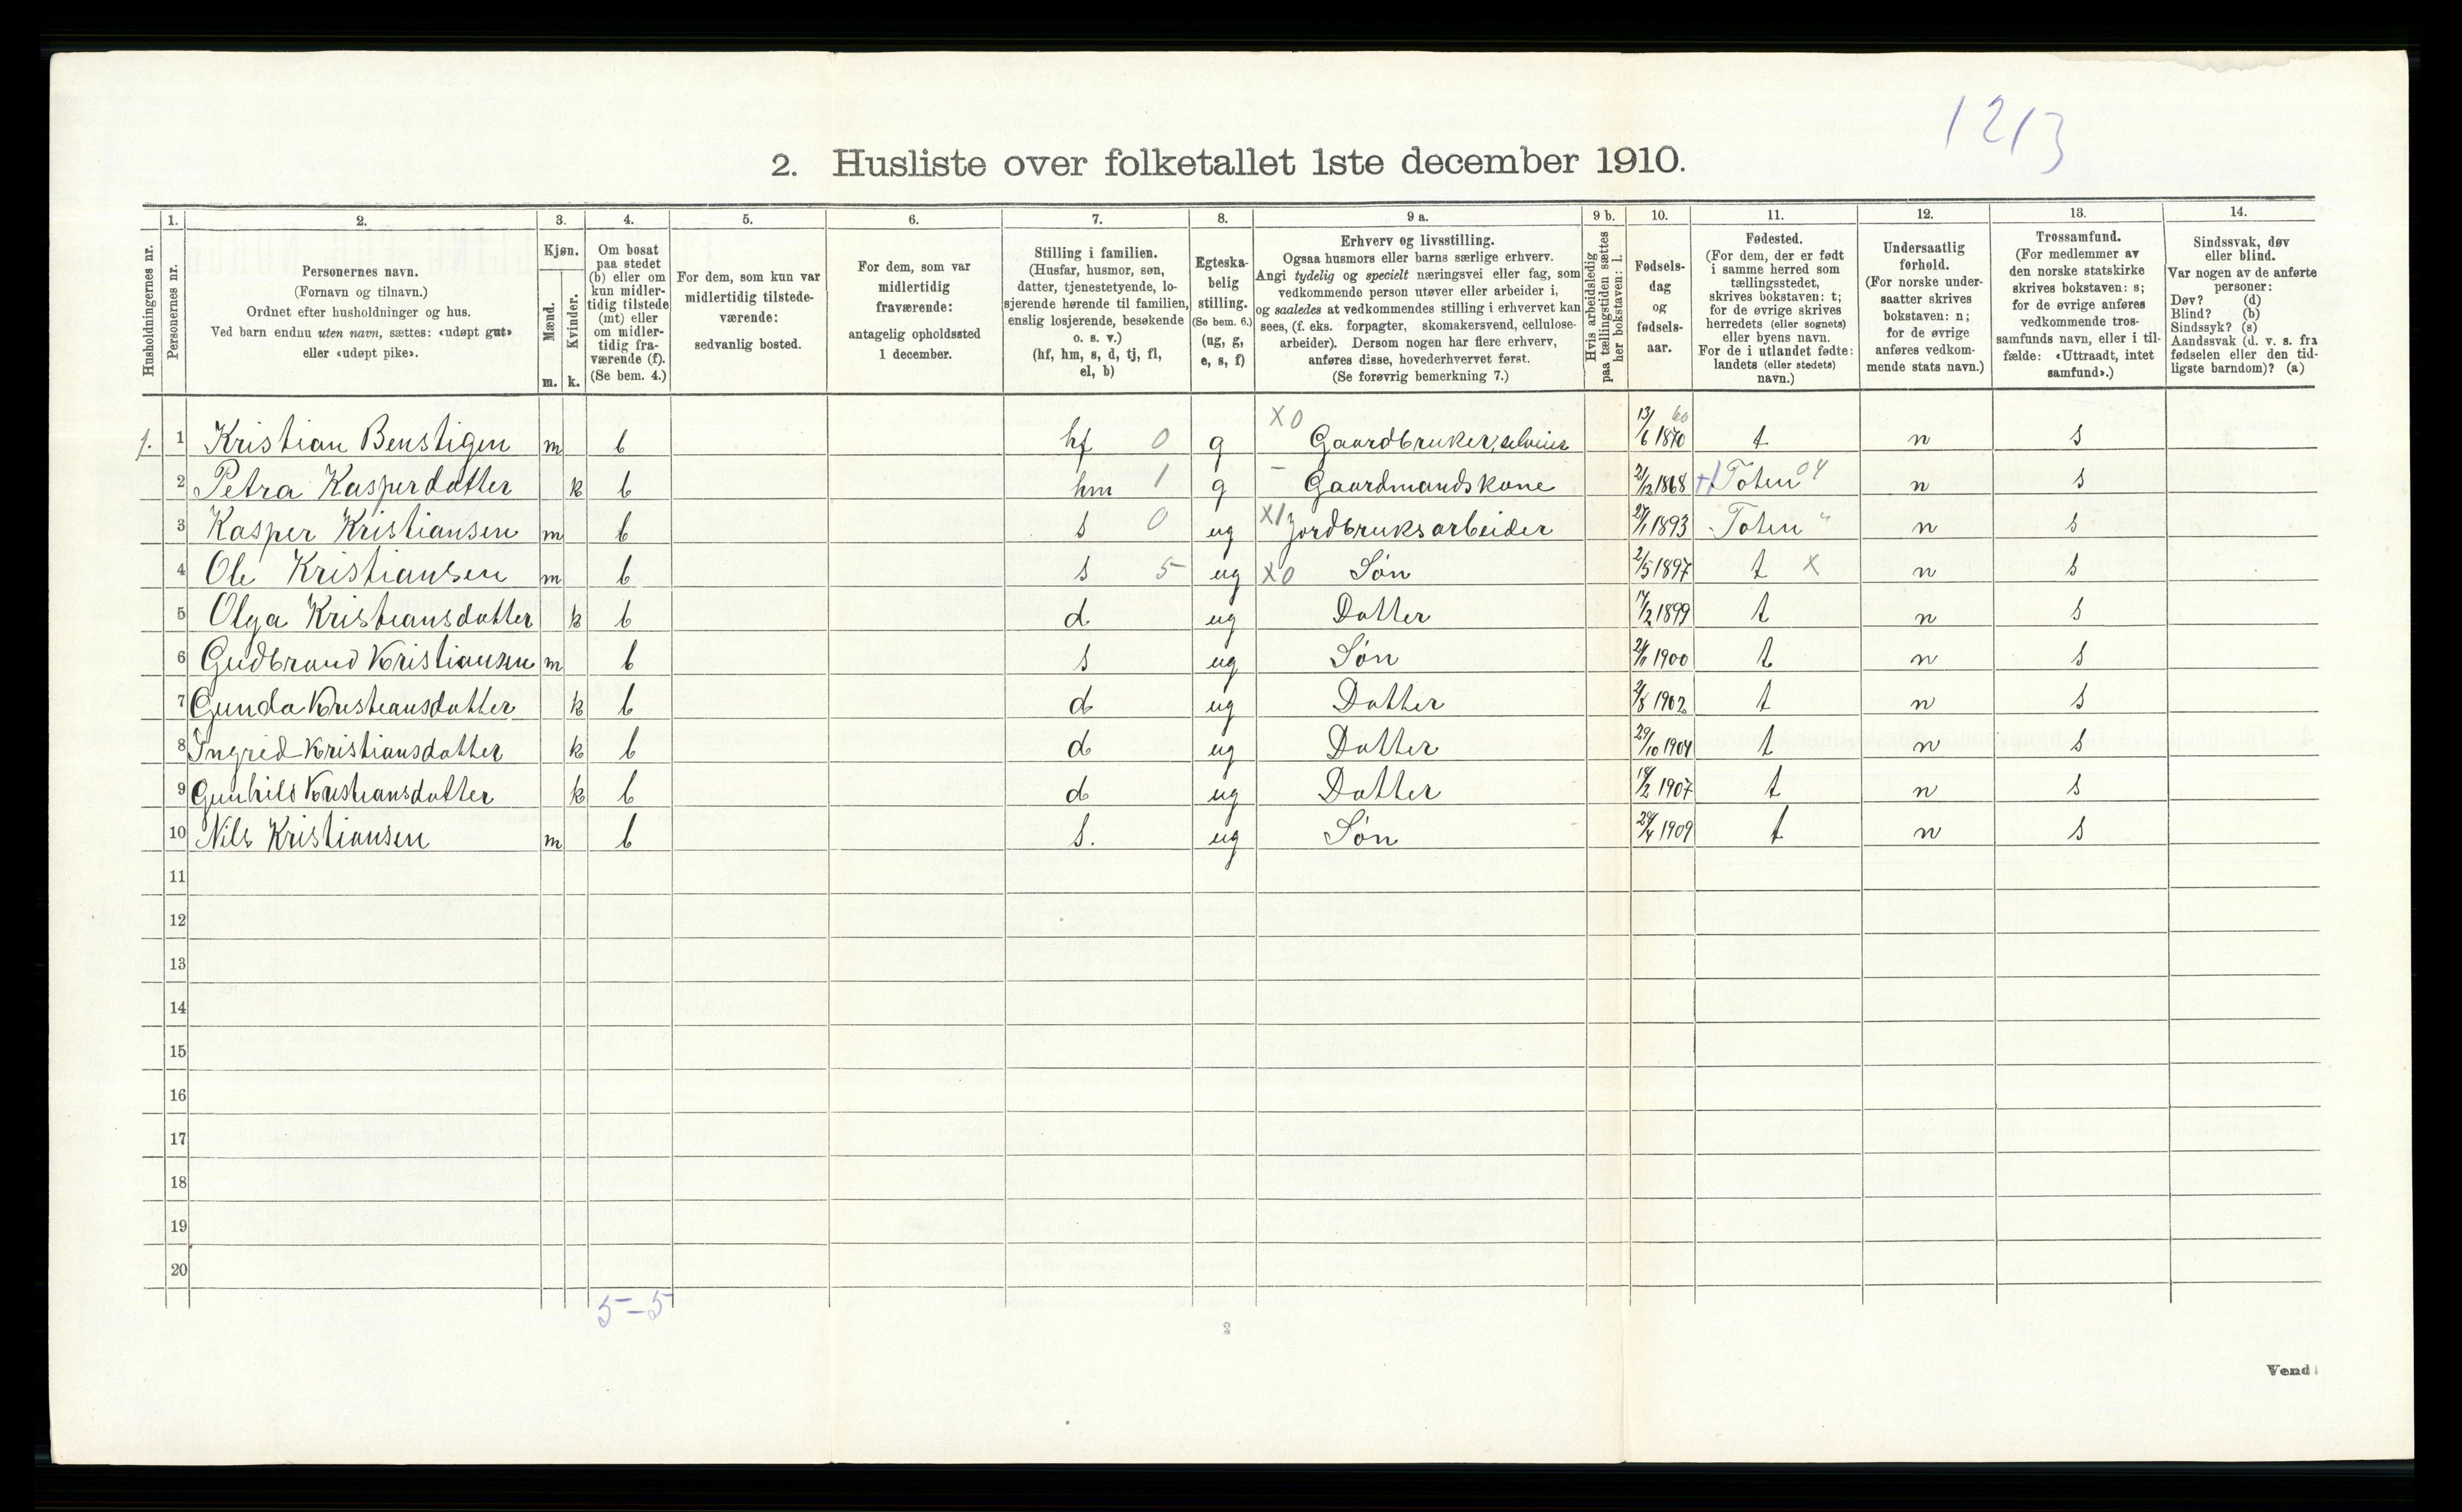 1213
2. Husliste over folketallet 1ste december 1910.
1. 2. 3. 4. 5. 6. 7. 8. 9 a. 9 b. 10. 11. 12. 13. 14.
Husholdningernes nr.
Personernes nr.
Personernes navn.
(Fornavn og tilnavn.)
Ordnet efter husholdninger og hus.
Ved barn endnu uten navn, sættes: «udøpt gut»
eller «udøpt pike».
Kjøn.
Mænd. Kvinder.
m. k.
Om bosat
paa stedet
(b) eller om
kun midler-
tidig tilstede
(mt) eller
om midler-
tidig fra-
værende (f).
(Se bem. 4.)
For dem, som kun var
midlertidig tilstede-
værende:
sedvanlig bosted.
For dem, som var
midlertidig
fraværende:
antagelig opholdssted
1 december.
Stilling i familien.
(Husfar, husmor, søn,
datter, tjenestetyende, lo-
sjerende hørende til familien,
enslig losjerende, besøkende
o. s. v.)
(hf, hm, s, d, tj, fl,
el, b)
Egteska-
belig
stilling.
(Se bem. 6.)
(ug, g,
e, s, f)
Erhverv og livsstilling.
Ogsaa husmors eller barns særlige erhverv.
Angi tydelig og specielt næringsvei eller fag, som
vedkommende person utøver eller arbeider i,
og saaledes at vedkommendes stilling i erhvervet kan
sees, (f. eks. forpagter, skomakersvend, cellulose-
arbeider). Dersom nogen har flere erhverv,
anføres disse, hovederhvervet først.
(Se forøvrig bemerkning 7.)
Hvis arbeidsledig
paa tællingstiden sættes
her bokstaven: l.
Fødsels-
dag
og
fødsels-
aar.
Fødested.
(For dem, der er født
i samme herred som
tællingsstedet,
skrives bokstaven: t;
for de øvrige skrives
herredets (eller sognets)
eller byens navn.
For de i utlandet fødte:
landets (eller stedets)
navn.)
Undersaatlig
forhold.
(For norske under-
saatter skrives
bokstaven: n;
for de øvrige
anføres vedkom-
mende stats navn.)
Trossamfund.
(For medlemmer av
den norske statskirke
skrives bokstaven: s;
for de øvrige anføres
vedkommende tros-
samfunds navn, eller i til-
fælde: «Uttraadt, intet
samfund».)
Sindssvak, døv
eller blind.
Var nogen av de anførte
personer:
Døv? (d)
Blind? (b)
Sindssyk? (s)
Aandssvak (d. v. s. fra
fødselen eller den tid-
ligste barndom)? (a)
1. 1 Kristian Benstigen m b hf 0 g X0 Gaardbruker, selveier 13/6 1870 60 t n s
2 Petra Kasperdatter k b hm 1 g - Gaardmandskone 21/12 1868 Toten 04 n s
3 Kasper Kristiansen m b s 0 ug X1 Jordbruksarbeider 27/1 1893 Toten " n s
4 Ole Kristiansen m b s 5 ug X0 Søn 2/5 1897 t X n s
5 Olga Kristiansdatter k b d ug Datter 17/2 1899 t n s
6 Gudbrand Kristiansen m b s ug Søn 1900 t n s
7 Gunda Kristiansdatter k b d ug Datter 1902 t n s
8 Ingrid Kristiansdatter k b d ug Datter 29/10 1904 t n s
9 Gunhild Kristiansdatter k b d ug Datter 18/2 1907 t n s
10 Nils Kristiansen m b s. ug Søn 1909 t n s
11
12
13
14
15
16
17
18
19
20
5-5
2
Vend